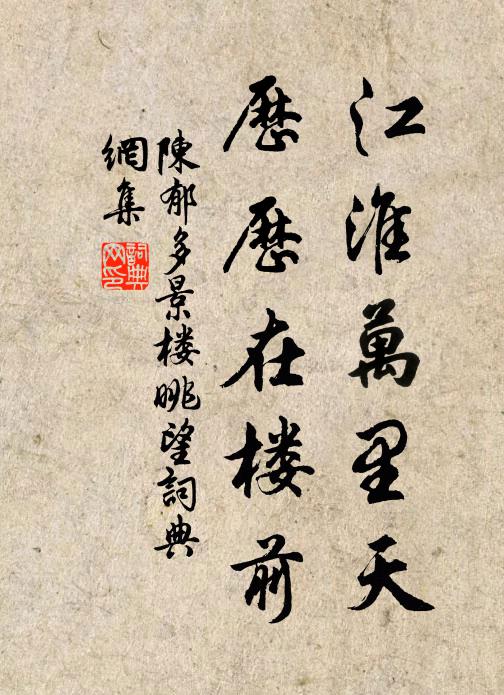 江淮萬里天
歷歷在楼前
陳郁多景楼眺望詞典
網集
詞典
网印